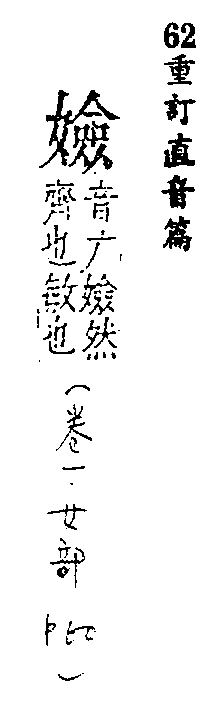 62重訂直音篇
嬐
音广嬐然
齊也敏也
(卷一·女部
)